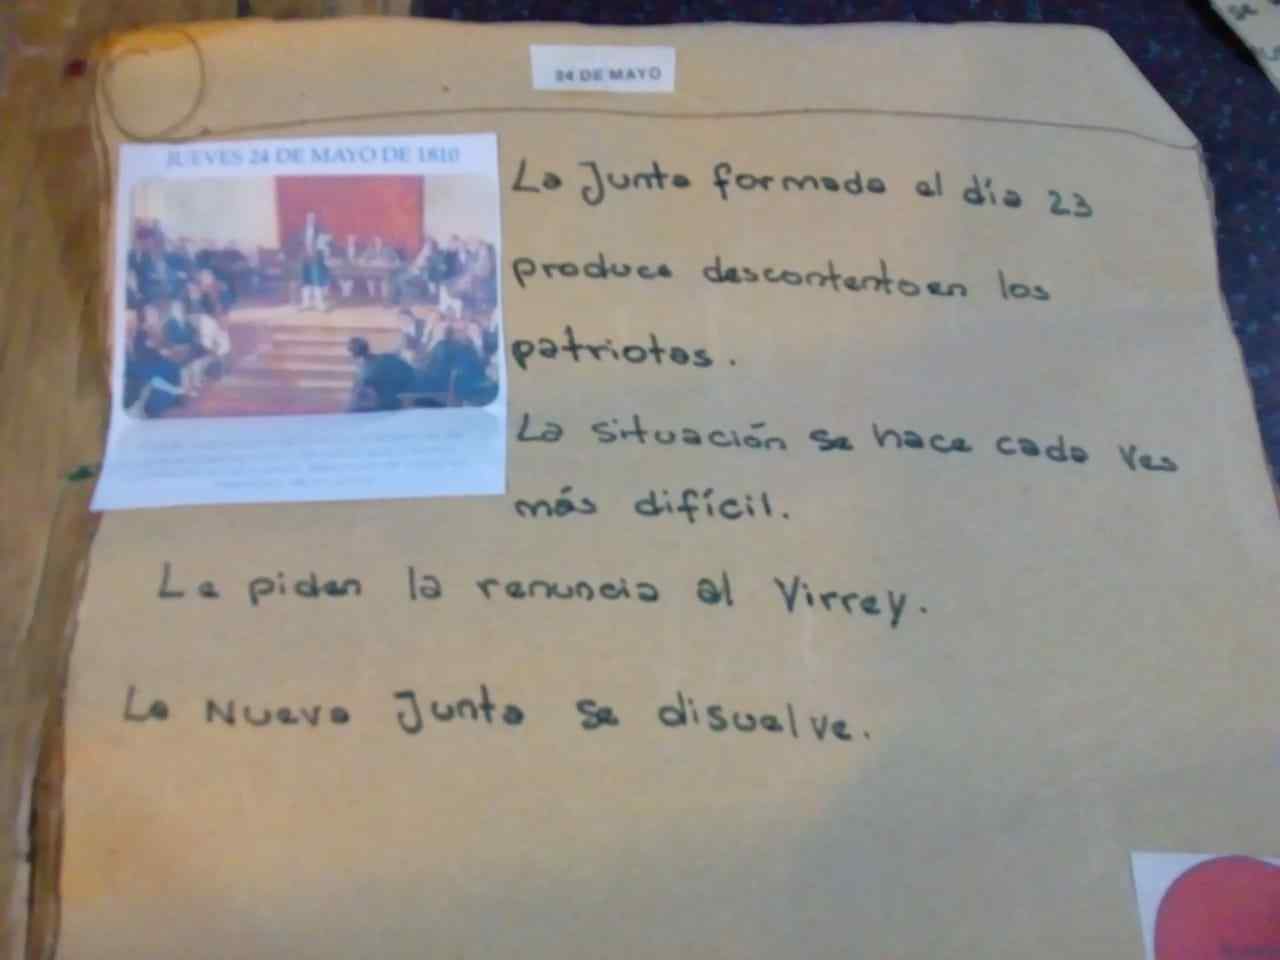 24 DE MAYO
JUEVES 24 DE MAYO DE 1810
La Junta formada el día 23
produce descontento en los
patriotas.
La situación se hace cada ves
más difícil.
Le piden la renuncia al Virrey.
La Nueva Junta se disuelve.
se